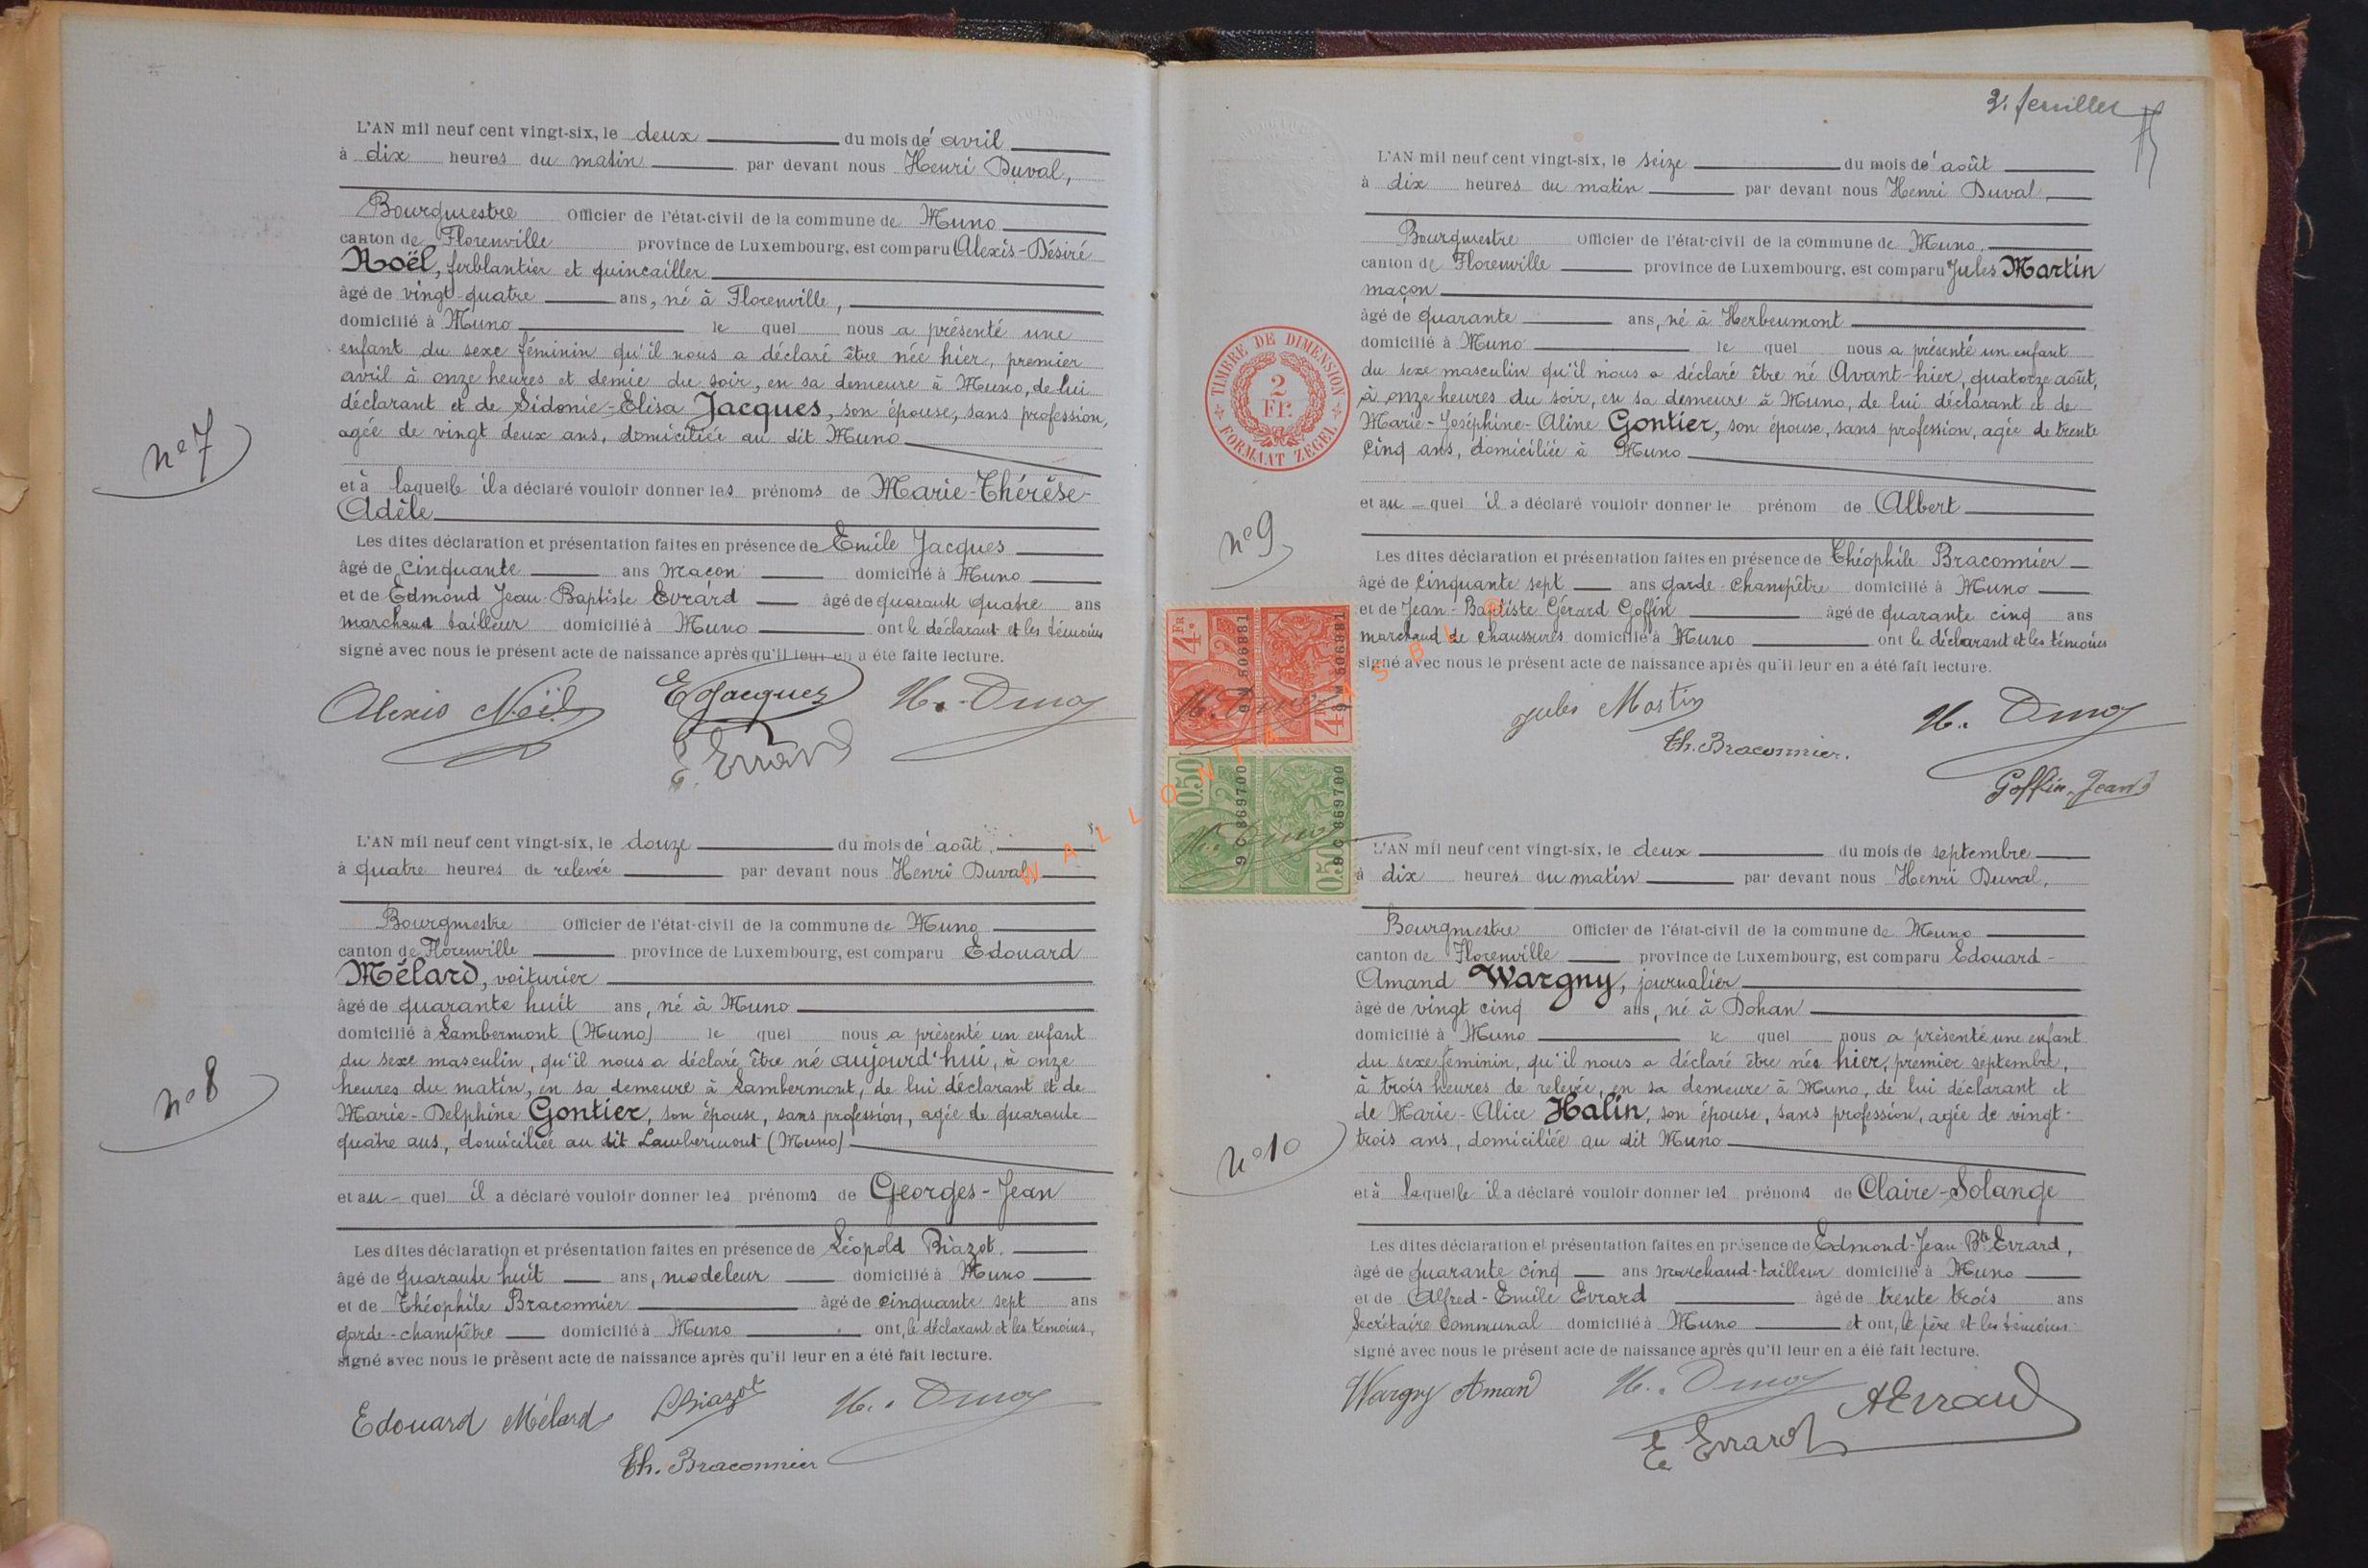 L'AN mil neuf cent vingt-six, le deux du mois de avril
à dix heures du matin par devant nous Henri Duval,
Bourgmestre Officier de l'état-civil de la commune de Muno
canton de Florenville province de Luxembourg, est comparu Alexis-Désiré
Noël, ferblantier et quincailler
âgé de vingt-quatre ans, né à Florenville,
domicilié à Muno le quel nous a présenté une
enfant du sexe féminin qu'il nous a déclaré être née hier, premier
avril à onze heures et demie du soir, en sa demeure à Muno, de lui
déclarant et de Sidonie-Elisa Jacques, son épouse, sans profession,
agée de vingt deux ans, domiciliée au dit Muno
n° 7
et à laquelle il a déclaré vouloir donner les prénoms de Marie-Thérèse-
Adèle
Les dites déclaration et présentation faites en présence de Emile Jacques
âgé de cinquante ans maçon domicilié à Muno
et de Edmond Jean-Baptiste Evrard âgé de quarante quatre ans
marchand tailleur domicilié à Muno ont le déclarant et les témoins
signé avec nous le présent acte de naissance après qu'il leur en a été faite lecture.
Alexis Noël E Jacques H. Duval
E. Evrard
L'AN mil neuf cent vingt-six, le douze du mois de août
à quatre heures de relevée par devant nous Henri Duval,
Bourgmestre Officier de l'état-civil de la commune de Muno
canton de Florenville province de Luxembourg, est comparu Edouard
Mélard, voiturier
âgé de quarante huit ans, né à Muno
domicilié à Lambermont (Muno) le quel nous a présenté un enfant
du sexe masculin, qu'il nous a déclaré être né aujourd'hui, à onze
heures du matin, en sa demeure à Lambermont, de lui déclarant et de
Marie-Delphine Gontier, son épouse, sans profession, agée de quarante
quatre ans, domiciliée au dit Lambermont (Muno)
n° 8
et au-quel il a déclaré vouloir donner les prénoms de Georges-Jean
Les dites déclaration et présentation faites en présence de Léopold Biazot.
âgé de quarante huit ans, modeleur domicilié à Muno
et de Théophile Braconnier âgé de cinquante sept ans
garde-champêtre domicilié à Muno ont, le déclarant et les témoins,
signé avec nous le présent acte de naissance après qu'il leur en a été fait lecture.
Edouard Mélard LBiazot H. Duval
Th. Braconnier
2e feuillet
L'AN mil neuf cent vingt-six, le seize du mois de août
à dix heures du matin par devant nous Henri Duval,
Bourgmestre Officier de l'état-civil de la commune de Muno
canton de Florenville province de Luxembourg, est comparu Jules Martin
maçon
âgé de quarante ans, né à Herbeumont
domicilié à Muno le quel nous a présenté un enfant
du sexe masculin qu'il nous a déclaré être né Avant-hier, quatorze août,
à onze heures du soir, en sa demeure à Muno, de lui déclarant et de
Marie-Joséphine-Aline Gontier, son épouse, sans profession, agée de trente
cinq ans, domiciliée à Muno
TIMBRE DE DIMENSION
2
Fr.
FORMAAT ZEGEL
n° 9
et au-quel il a déclaré vouloir donner le prénom de Albert
Les dites déclaration et présentation faites en présence de Théophile Braconnier
âgé de cinquante sept ans garde-champêtre domicilié à Muno
et de Jean-Baptiste Gérard Goffin âgé de quarante cinq ans
marchand de chaussures domicilié à Muno ont le déclarant et les témoins
signé avec nous le présent acte de naissance après qu'il leur en a été fait lecture.
Jules Martin H. Duval
Th. Braconnier.
Goffin-Jean
4 FR
9 M 506881
4 FR
9 M 506881
H. Duval
0.50
9 C 869700
0.50
9 C 869700
H. Duval
WALLONIA ASBL ©
L'AN mil neuf cent vingt-six, le deux du mois de septembre
à dix heures du matin par devant nous Henri Duval,
Bourgmestre Officier de l'état-civil de la commune de Muno
canton de Florenville province de Luxembourg, est comparu Edouard-
Amand Wargny, journalier
âgé de vingt cinq ans, né à Dohan
domicilié à Muno le quel nous a présenté une enfant
du sexe féminin, qu'il nous a déclaré être née hier, premier septembre,
à trois heures de relevée, en sa demeure à Muno, de lui déclarant et
de Marie-Alice Halin, son épouse, sans profession, agée de vingt-
trois ans, domiciliée au dit Muno
n° 10
et à laquelle il a déclaré vouloir donner les prénoms de Claire-Solange
Les dites déclaration et présentation faites en présence de Edmond-Jean Bte Evrard,
âgé de quarante cinq ans marchand-tailleur domicilié à Muno
et de Alfred-Emile Evrard âgé de trente trois ans
Secrétaire Communal domicilié à Muno et ont, le père et les témoins
signé avec nous le présent acte de naissance après qu'il leur en a été fait lecture.
Wargny Amand H. Duval AEvrard
E Evrard